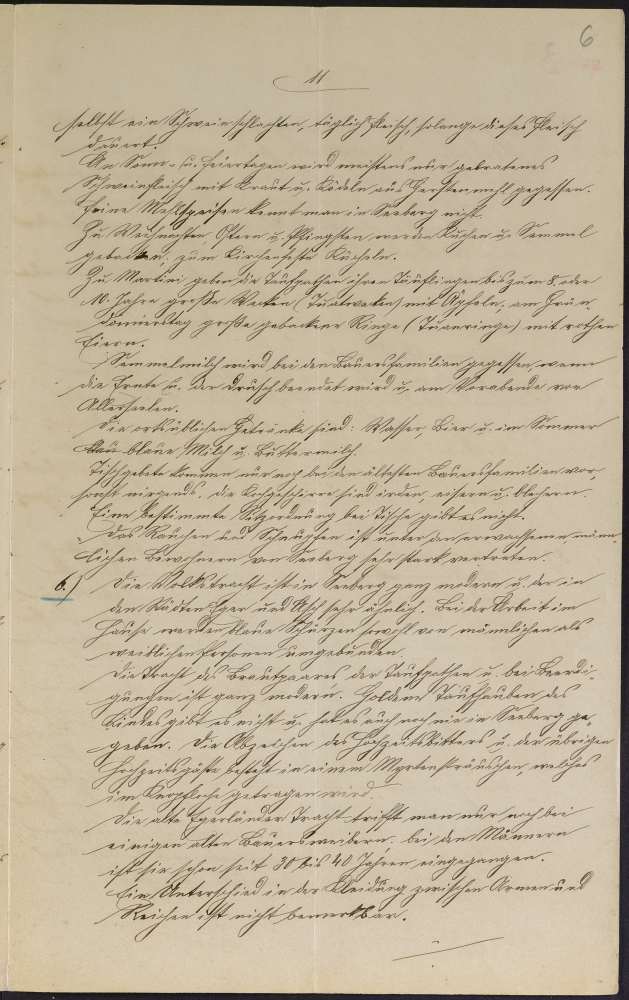 6
11
selbst ein Schwein schlachten, täglich Fleisch, solange dieses Fleisch
dauert.
An Sonn- u. Feiertagen wird meistens nur gebratenes
Schweinfleisch mit Kraut u. Knödeln aus Gerstenmehl gegessen.
Feine Mehlspeisen kennt man in Seeberg nicht.
Zu Weihnachten, Ostern u. Pfingsten werden Kuchen u. Semmel
gebacken, zum Kirchenfeste Kücheln.
Zu Martini geben die Taufpathen ihren Täuflingen bis zum 8. oder
10. Jahre große Wecken mit Äpfeln, am Grün-
donnerstag große gebackene Ringe mit rothen
Eiern.
Semmelmilch wird bei den Bauersfamilien gegessen, wenn
die Ernte u. der Drusch beendet wird u. am Vorabende von
Allerseelen.
Die ortsüblichen Getränke sind: Wasser, Bier u. im Sommer
blaue Milch u. Buttermilch.
Tischgebete kommen nur noch bei den ältesten Bauersfamilien vor,
sonst nirgends. Die Kochgeschirre sind irden, eisern u. blechern.
Eine bestimmte Sitzordnung bei Tische gibt es nicht.
Das Rauchen und Schnupfen ist unter den erwachsenen männ-
lichen Bewohnern von Seeberg sehr stark vertreten.
6.) Die Volkstracht ist in Seeberg ganz modern u. der in
den Städten Eger und Asch sehr ähnlich. Bei der Arbeit im
Hause werden blaue Schürzen sowohl von männlichen als
weiblichen Personen umgebunden.
Die Tracht des Brautpaares der Taufpathen u. bei Beerdi-
gungen ist ganz modern. Goldene Taufhauben des
Kindes gibt es nicht u. hat es auch noch nie in Seeberg ge-
geben. Die Abzeichen des Hochzeitsbitters u. der übrigen
Hochzeitsgäste besteht in einem Myrtensträuschen, welches
im Knopfloch getragen wird.
Die alte Egerländer Tracht trifft man nur noch bei
einigen alten Bauersweibern. bei den Männern
ist sie schon seit 30 bis 40 Jahren eingegangen.
Ein Unterschied in der Kleidung zwischen Armen und
Reichen ist nicht bemerkbar.